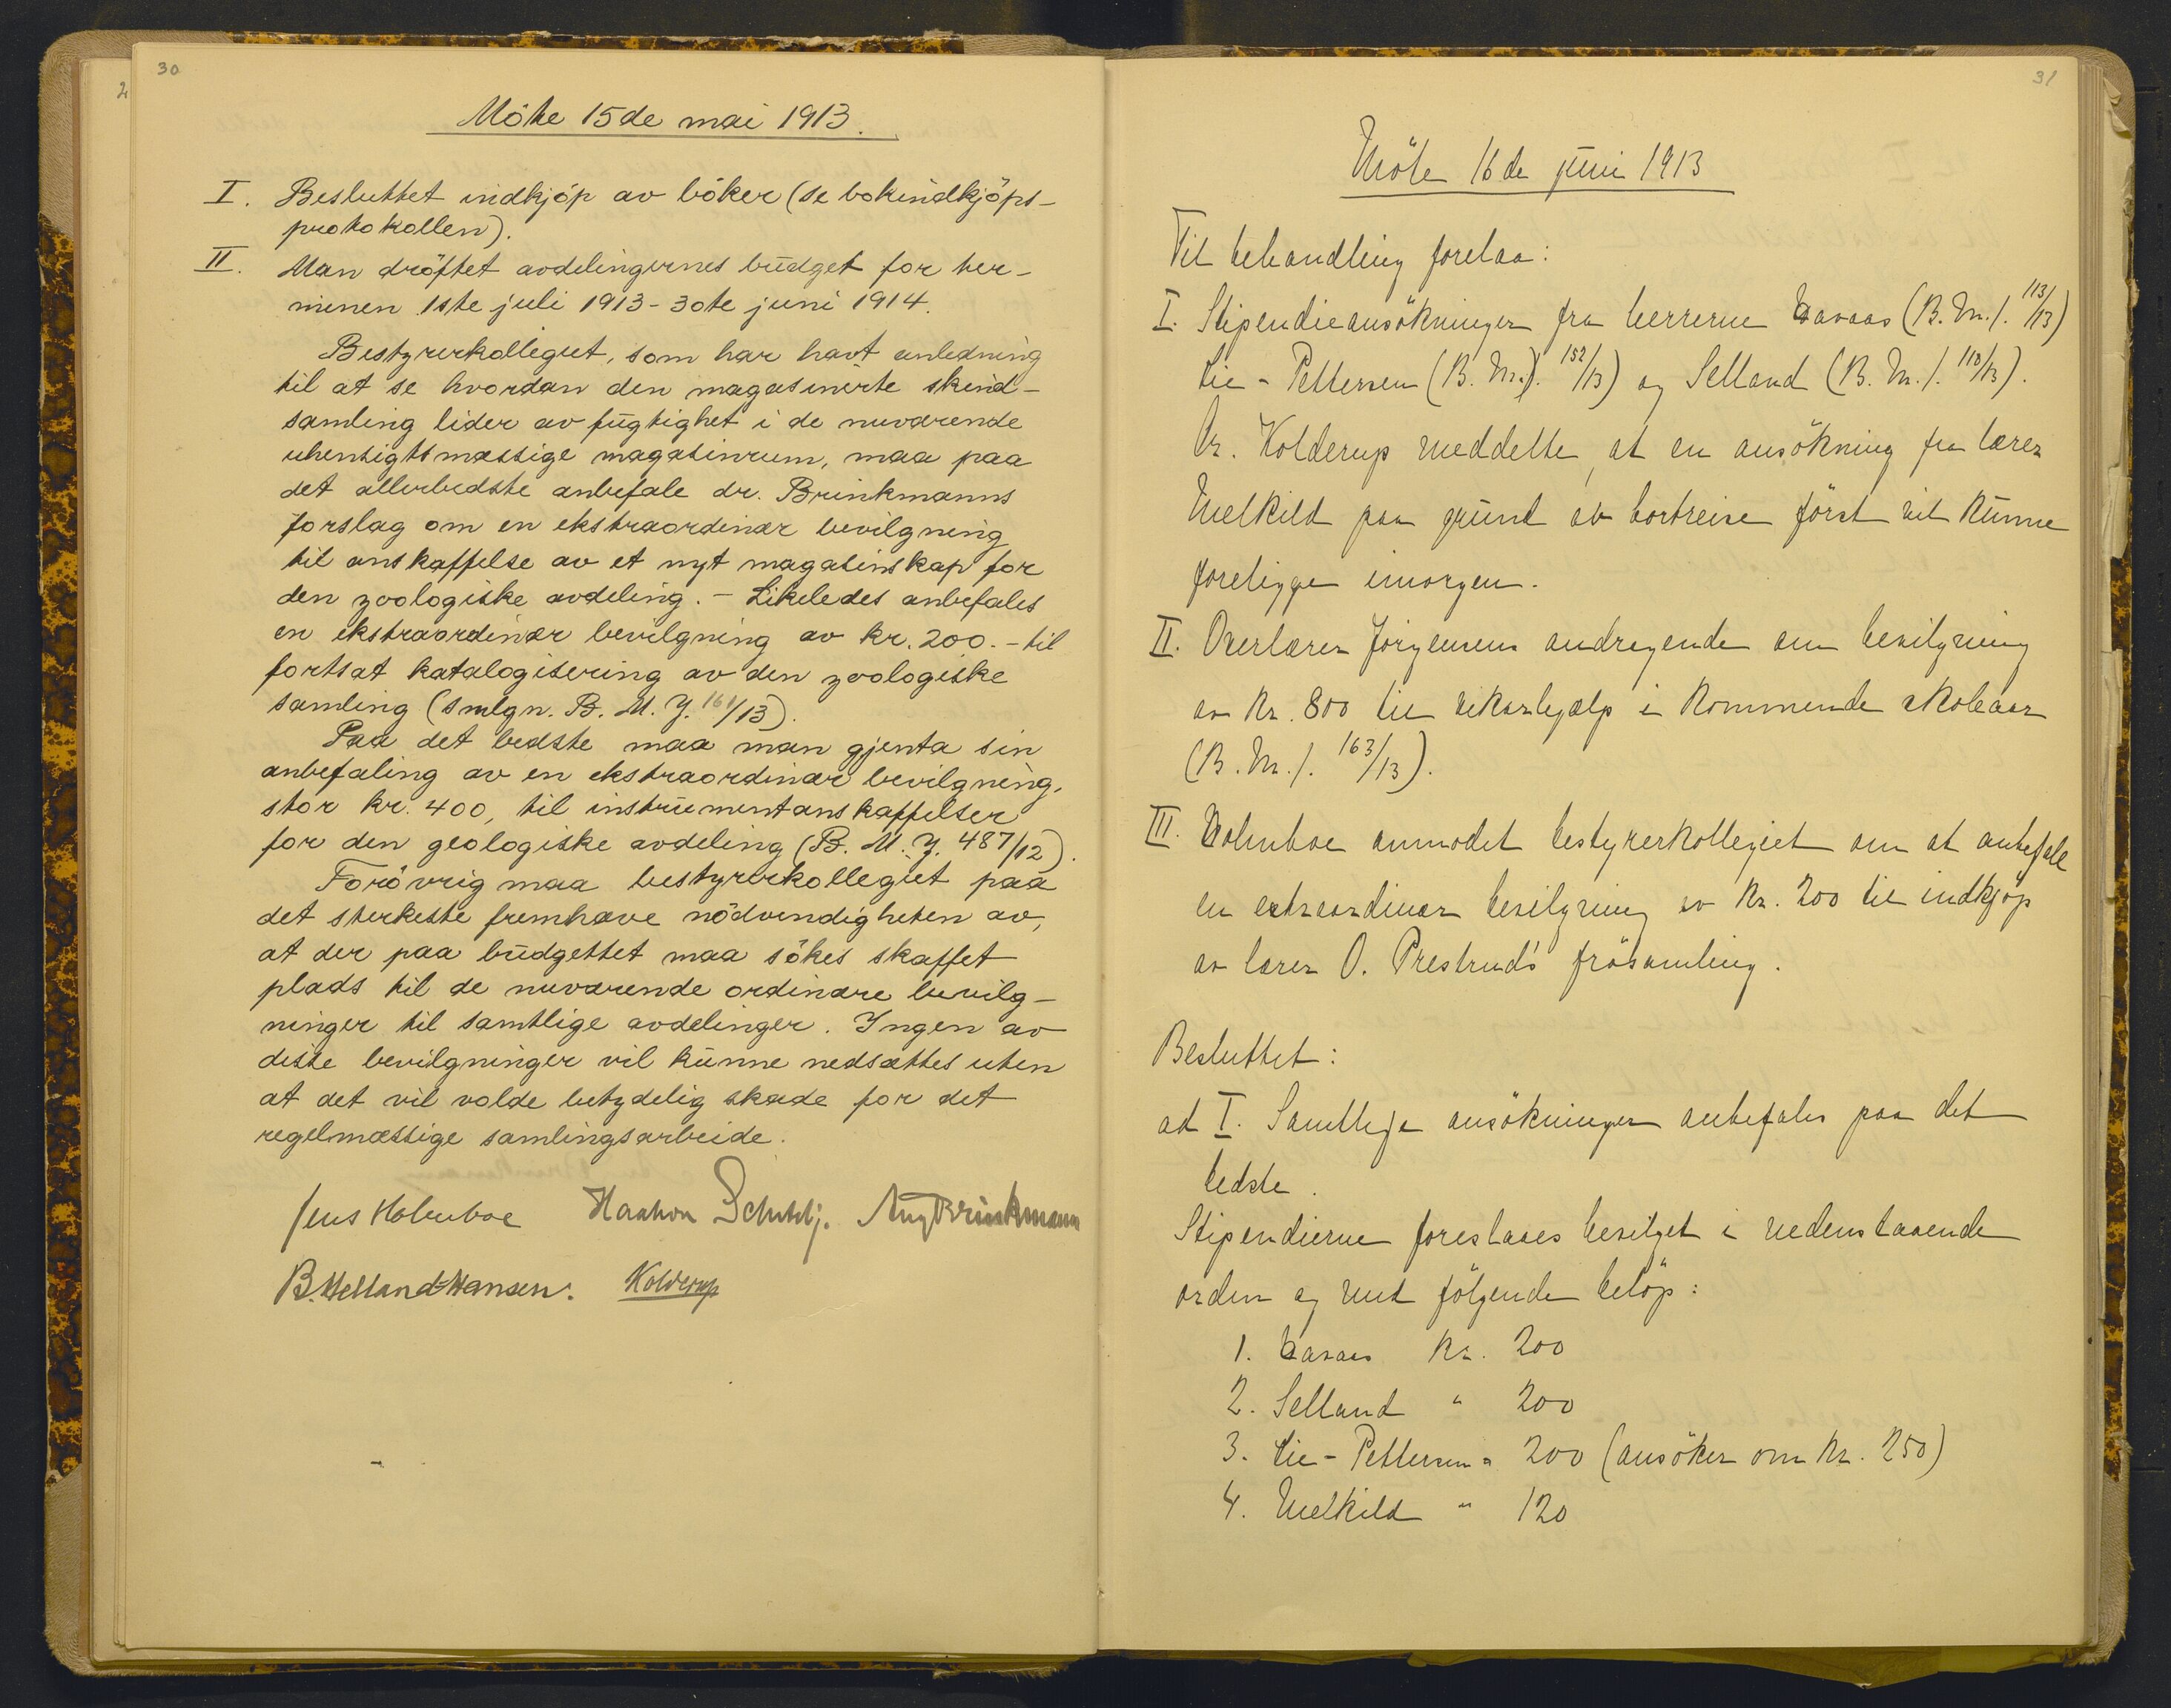 30
Möte 15de mai 1913.
I. Besluttet indkjöp av böker (se bokindkjöps-
protokollen).
II. Man dröftet avdelingernes budget for ter-
minen 1ste juli 1913 - 30te juni 1914.
Bestyrerkollegiet, som har havt anledning
til at se hvordan den magasinerte skind-
samling lider av fugtighet i de nuværende
uhensigtsmæssige magasinrum, maa paa
det allerbedste anbefale dr. Brinkmanns
forslag om en ekstraordinær bevilgning
til anskaffelse av et nyt magasinskap for
den zoologiske avdeling. - Likeledes anbefales
en ekstraordinær bevilgning av kr. 200.- til
fortsat katalogisering av den zoologiske
samling (smlgn. B. M. J. 161/13).
Paa det bedste maa man gjenta sin
anbefaling av en ekstraordinær bevilgning,
stor kr. 400, til instrumentanskaffelser
for den geologiske avdeling (B. M. J. 487/12).
Forövrig maa bestyrerkollegiet paa
det sterkeste fremhæve nödvendigheten av,
at der paa budgettet maa sökes skaffet
plads til de nuværende ordinære bevilg-
ninger til samtlige avdelinger. Ingen av
disse bevilgninger vil kunne nedsættes uten
at det vil volde betydelig skade for det
regelmæssige samlingsarbeide.
Jens Holmboe Haakon Schetelig. Aug Brinkmann
B. Helland-Hansen. Kolderup
31
Möte 16de juni 1913
Til behandling forelaa:
I. Stipendieansökninger fra herrerne Havaas (B. M. J. 113/13)
Lie-Pettersen (B. M. J. 152/13) og Selland (B. M. J. 118/13).
Dr. Kolderup meddelte, at en ansökning fra lærer
Melkild paa grund av bortreise först vil kunne
foreligge imorgen.
II. Overlærer Jörgensens andragende om bevilgning
av kr. 800 til vikarhjælp i kommende skoleaar
(B. M. J. 163/13).
III. Holmboe anmodet bestyrerkollegiet om at anbefale
en extraordinær bevilgning av kr. 200 til indkjöp
av lærer O. Prestrud's frösamling.
Besluttet:
ad I. Samtlige ansökninger anbefales paa det
bedste.
Stipendierne foreslaaes bevilget i nedenstaaende
orden og med fölgende belöp:
1. Havaas kr. 200
2. Selland " 200
3. Lie-Pettersen " 200 (ansöker om kr. 250)
4. Melkild " 120